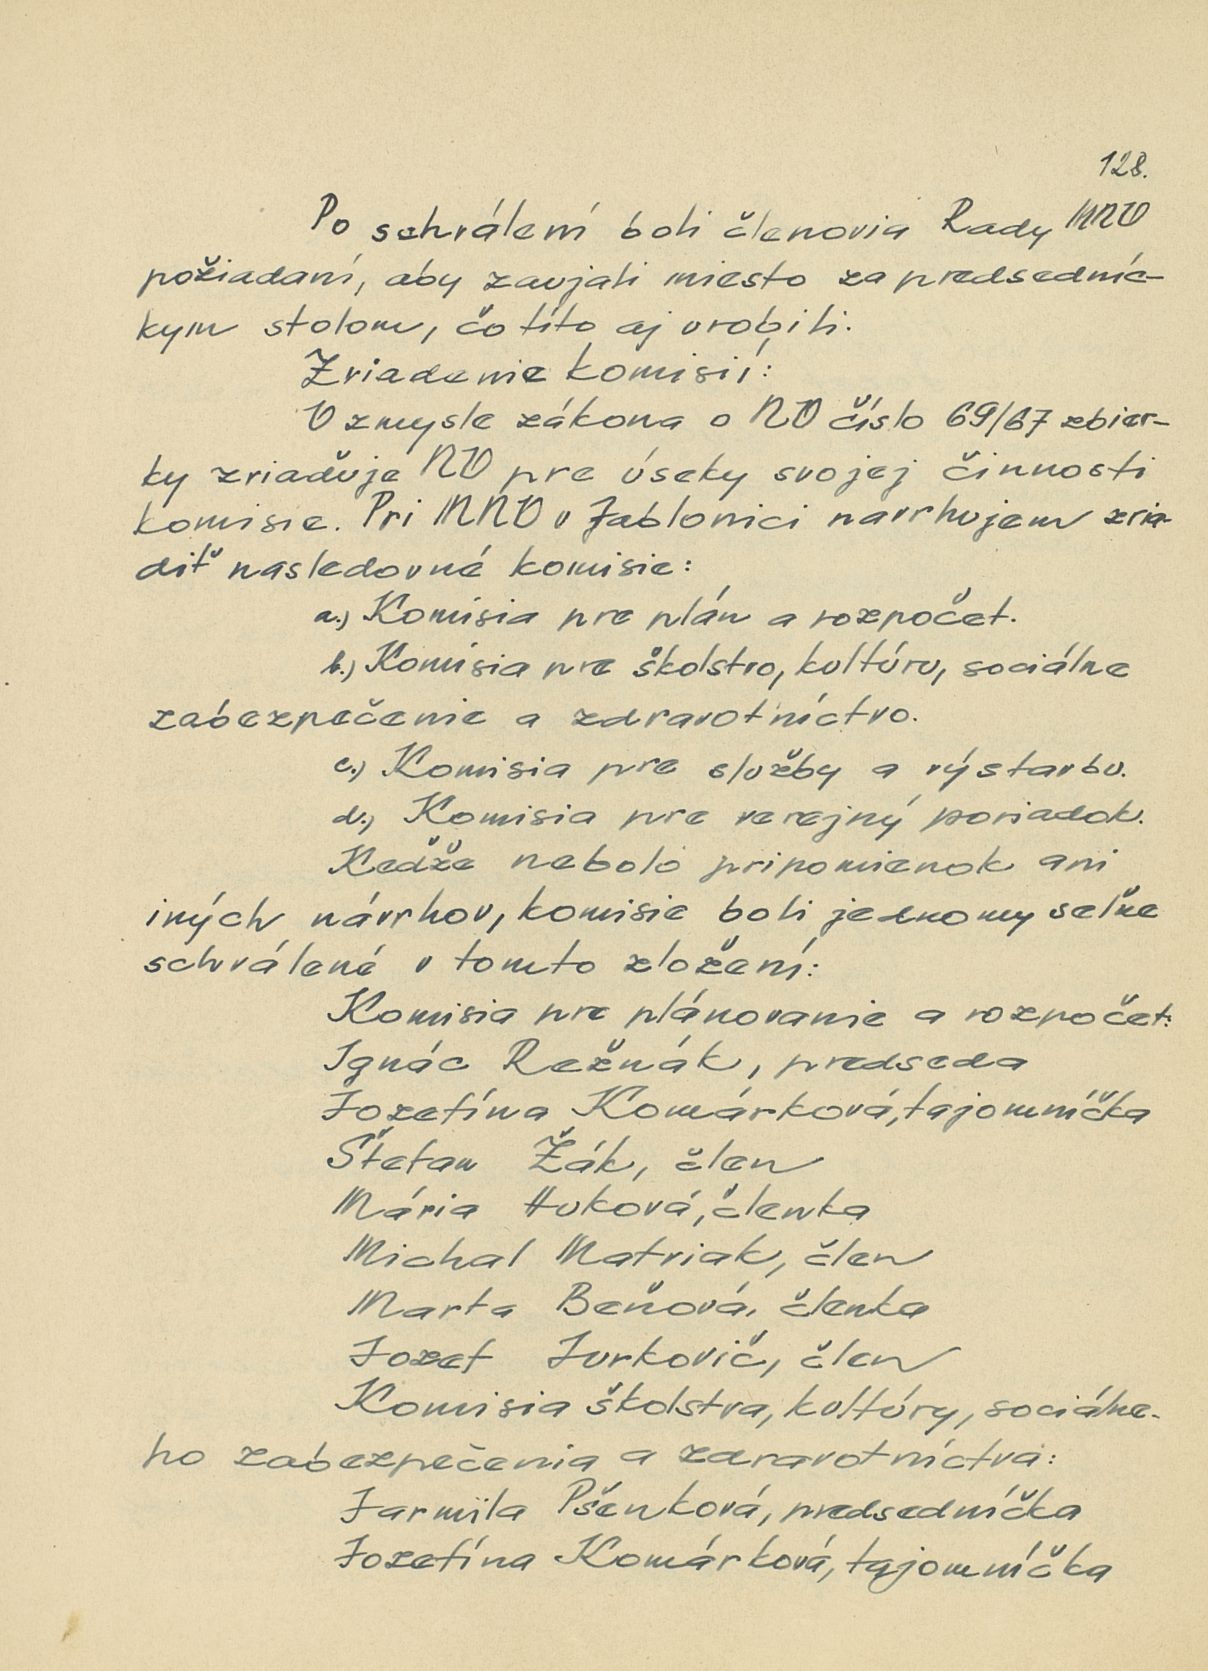 128.
Po schválení boli členovia Rady MNV
požiadaní, aby zaujali miesto za predsedníc-
kym stolom, čo títo aj urobili.
Zriadenie komisií:
V zmysle zákona o NV číslo 69/67 zbier-
ky zriaďuje NV pre úseky svojej činnosti
komisie. Pri MNV v Jablonici navrhujem zria-
diť nasledovné komisie:
a.) Komisia pre plán a rozpočet.
b.) Komisia pre školstvo, kultúru, sociálne
zabezpečenie a zdravotníctvo.
c.) Komisia pre služby a výstavbu.
d.) Komisia pre verejný poriadok.
Keďže nebolo pripomienok ani
iných návrhov, komisie boli jednomyseľne
schválené v tomto zložení:
Komisia pre plánovanie a rozpočet:
Ignác Režnák, predseda
Jozefína Komárková, tajomníčka
Štefan Žák, člen
Mária Huková, členka
Michal Matriak, člen
Marta Beňová, členka
Jozef Jurkovič, člen
Komisia školstva, kultúry, sociálne-
ho zabezpečenia a zdravotníctva:
Jarmila Pšenková, predsedníčka
Jozefína Komárková, tajomníčka